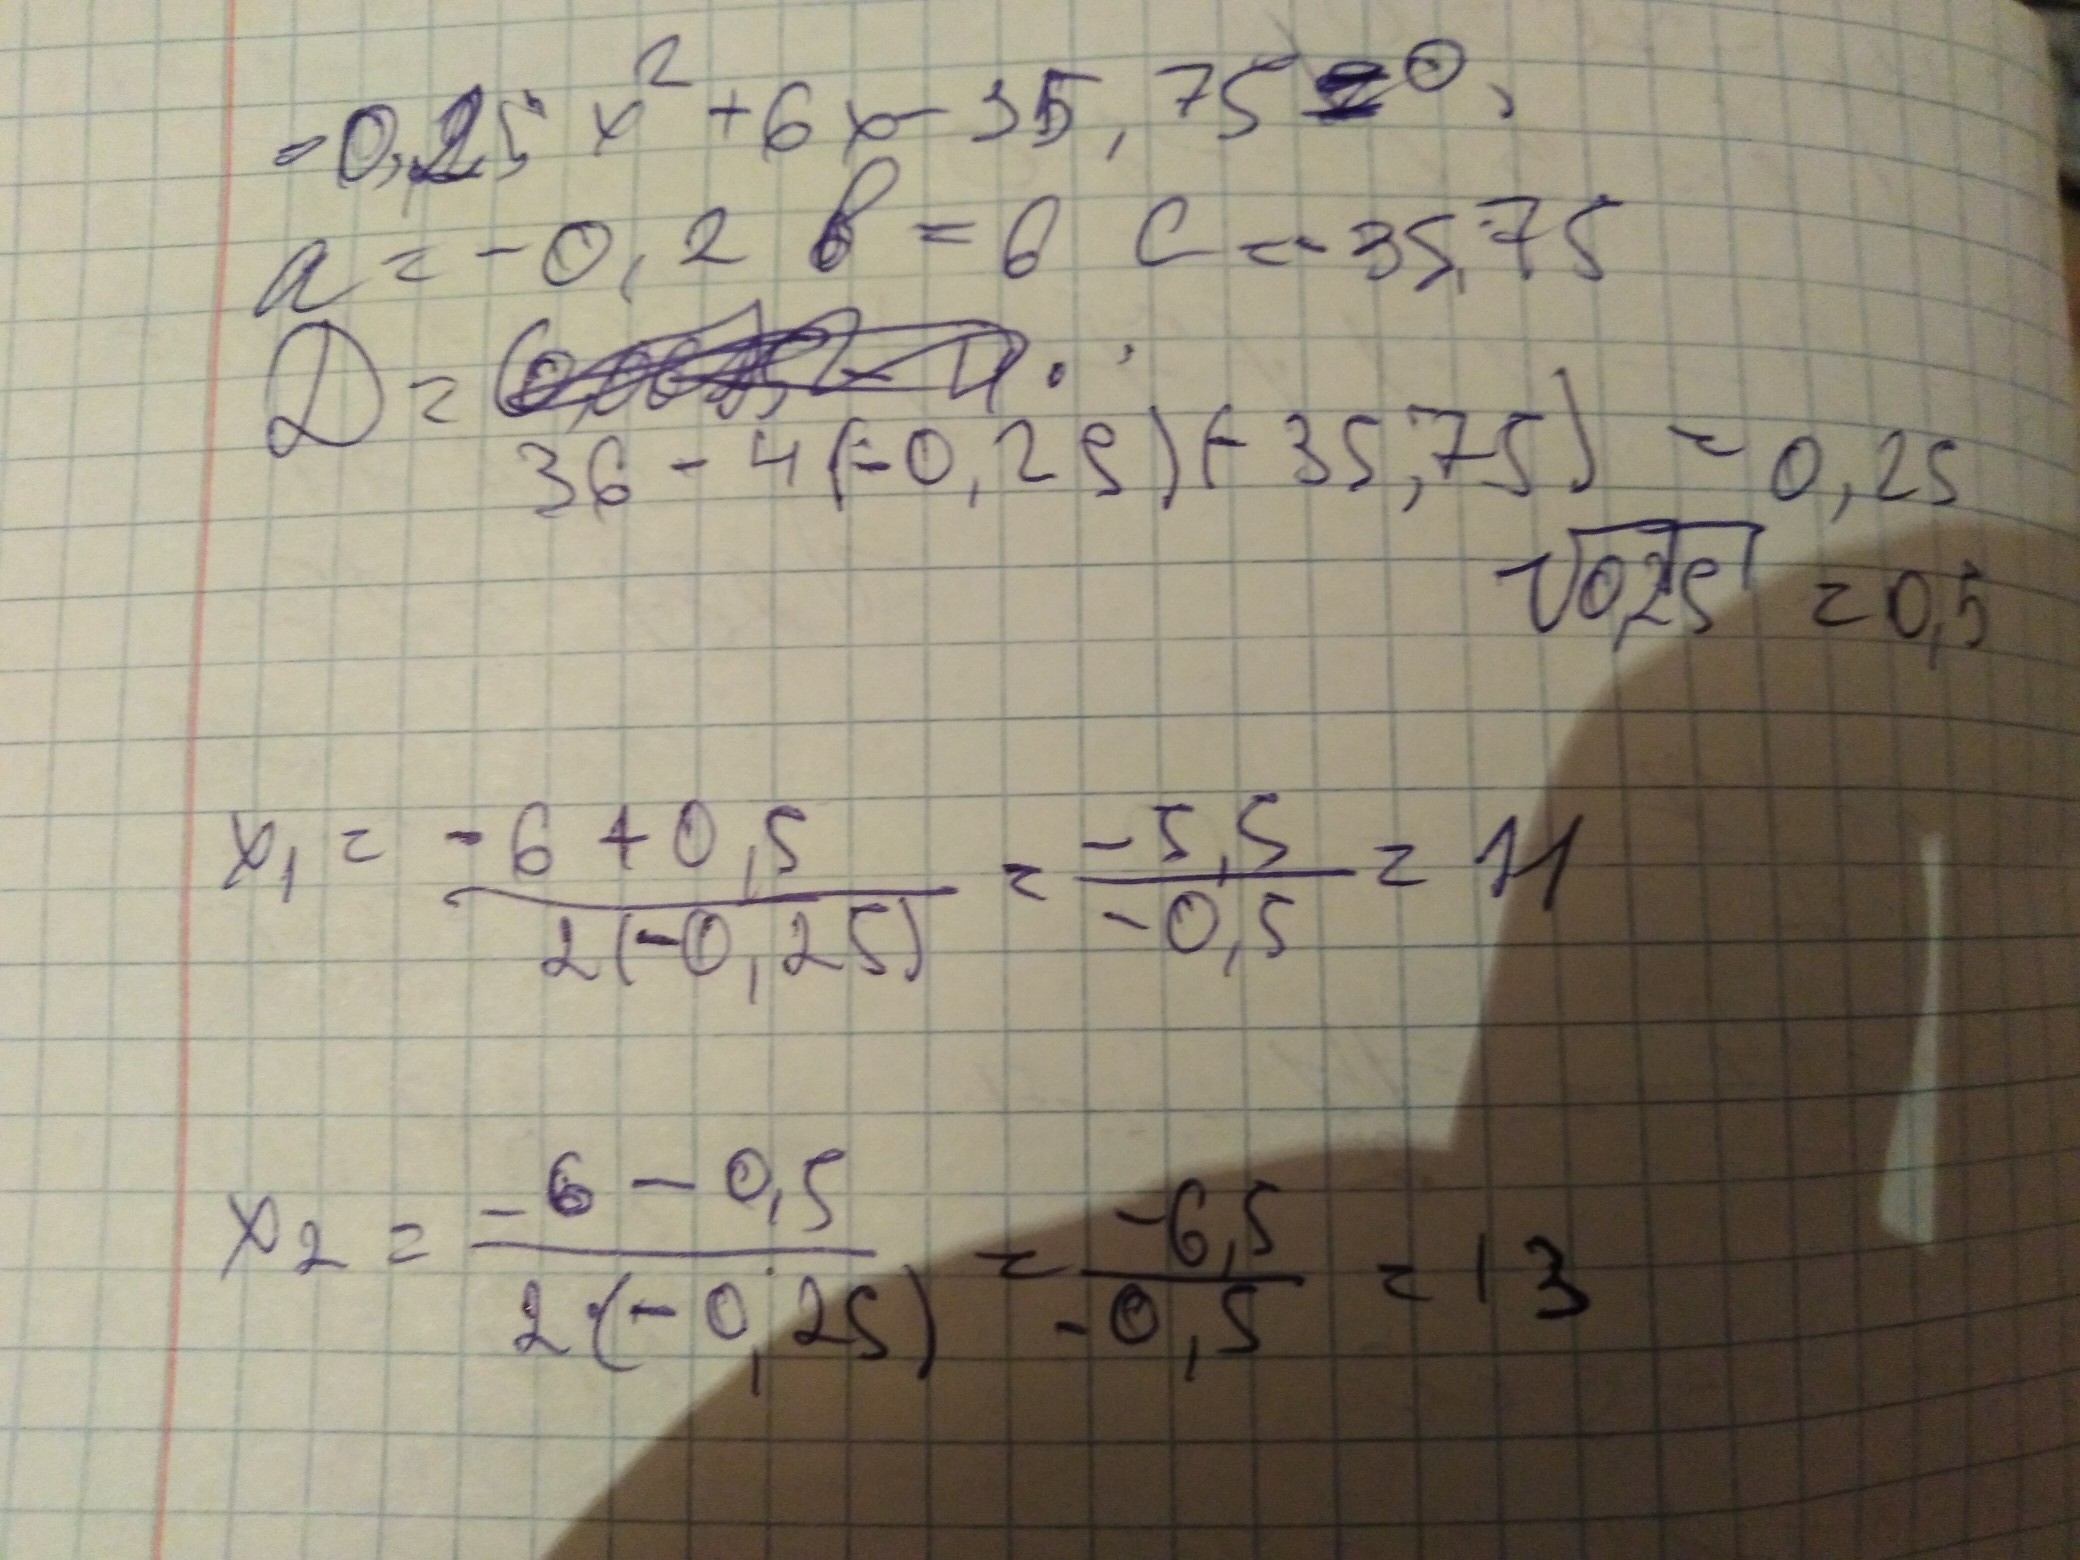 -0,25x² + 6x - 35,75 = 0,
a = -0,2 b = 6 c = -35,75
D =
36 - 4(-0,25)(-35,75) = 0,25
√0,25 = 0,5
x₁ = (-6 + 0,5) / (2(-0,25)) = (-5,5) / (-0,5) = 11
x₂ = (-6 - 0,5) / (2·(-0,25)) = (-6,5) / (-0,5) = 13